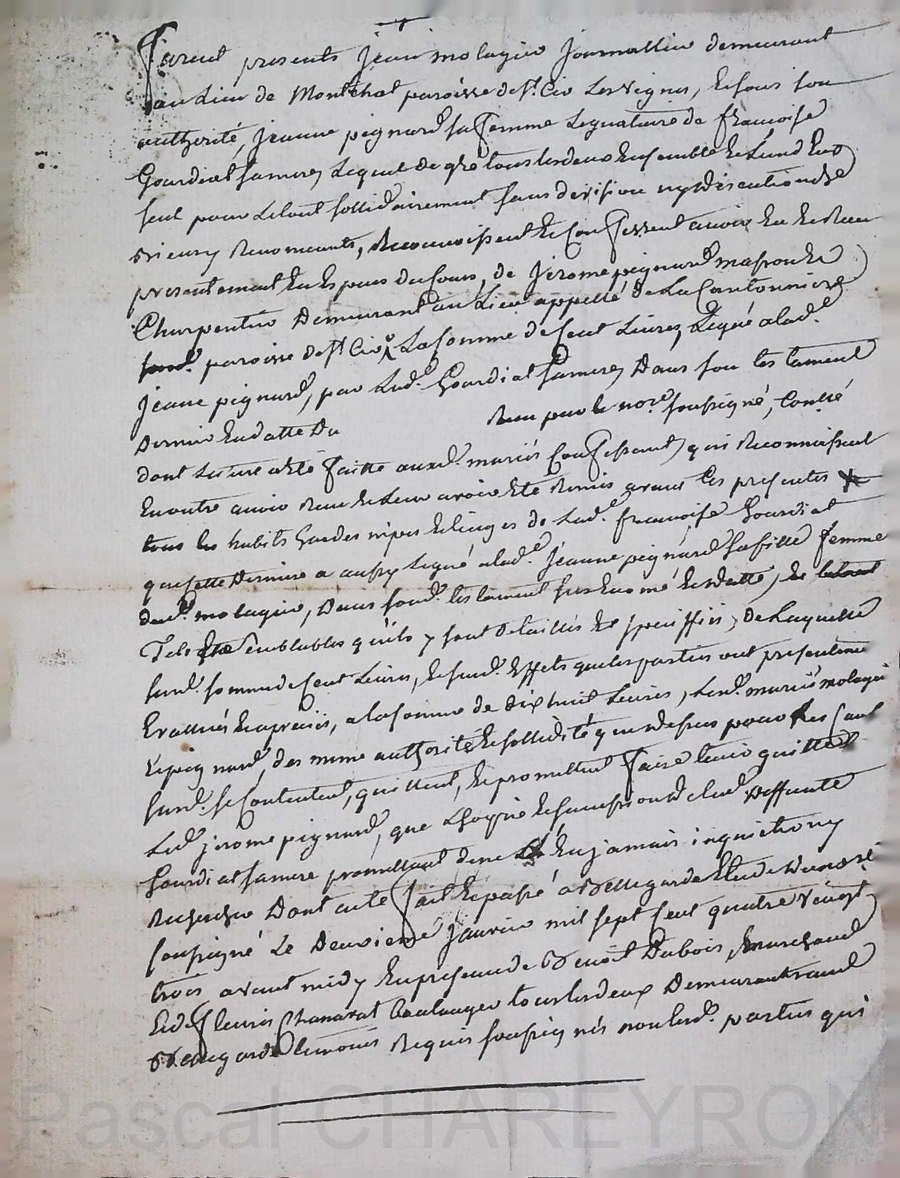 furent presents jean molagier journallier demeurant
au lieu de Montchal paroisse de st. Cir Les vignes, Et sous son
authorité, jeanne pignard sa femme Legataire de francoise
Gourdiat sa mere, Lequel de gré tous les deux Ensemble Et Lund Eux
seul pour Le tout sollidairement sans division ny discution
renoncants, Reconnoissent Et Confessent avoir Eu Et Receu
presentement En Especes du Cours, de jerome pignard masson Et
Charpentier Demeurant au Lieu appellé de La Cantonniere
susd. paroisse de st. Cir, La somme de Cent Livres, Legué a lad.
jeanne pignard, par Lad. Gourdiat sa mere, Dans son testament
Dernier En datte Du Receu par le nore. soussigné, Conllé
dont Lecture a Eté faitte auxd. mariés Confessants, qui Reconnoissent
En outre avoir Receu Et Leur avoir Eté Remis avant Ces presentes
tous les habits Gardes nipes Et linges de Lad. francoise Gourdiat
que Cette Derniere a aussy Legué a lad. jeanne pignard sa fille femme
dud. molagier, Dans sond. testament sus Enomé Et datte, Et
Tels Et semblables qu'ils y sont detaillés Et speciffiés, de Laquelle
susd. somme de Cent Livres, Et susd. Effets que les parties ont presentement
Evallués Et apreciés, a la somme de dix huit Livres, Lesd. mariés molagier
Et pignard, des meme authorité Et sollidité que dessus pour Les Causes
susd. se Contentent, quittent, Et promettent faire tenir quitte
Led. jerome pignard, que Lhoyrie Et succession de lad. deffunte
Gourdiat sa mere promettant de ne En jamais inquieter ny
Rechercher Dont acte fait Et passé a Bellegarde Etude du nore.
soussigné Le Deuxieme janvier mil sept Cent quatre vingt
trois avant midy En presence de Benoit Dubois, Marchand
Et de fleury Chanavat boulanger tous les deux Demeurants aud.
Bellegarde temoins Requis soussignés non lesd. parties qui
Pascal CHAREYRON